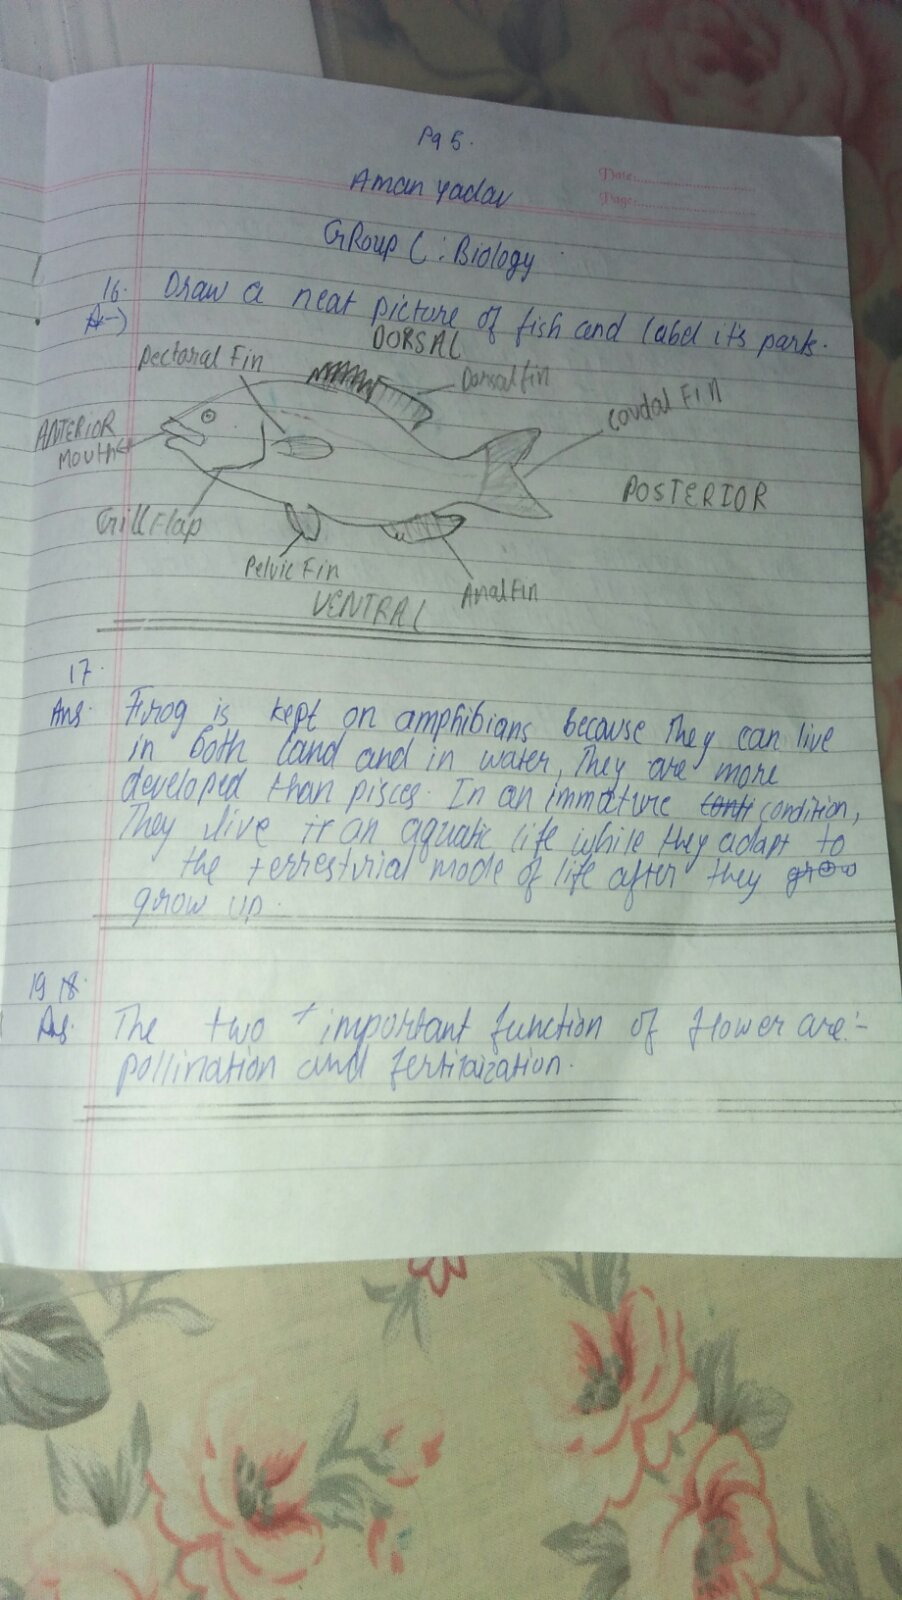 Pg 5.
Date:
Aman Yadav
Page:
GRoup C : Biology
16. Draw a neat picture of fish and label it's parts.
A→)
DORSAL
Pectoral Fin
Dorsal fin
Caudal Fin
ANTERIOR
Mouth
POSTERIOR
Gill Flap
Pelvic Fin
Anal Fin
VENTRAL
17.
Ans. Frog is kept on amphibians because they can live
in both land and in water, They are more
developed than pisces. In an immature conti condition,
They live it an aquatic life while they adapt to
the terresturial mode of life after they grow
grow up.
19 18.
Ans. The two important function of flower are:-
pollination and fertilaization.